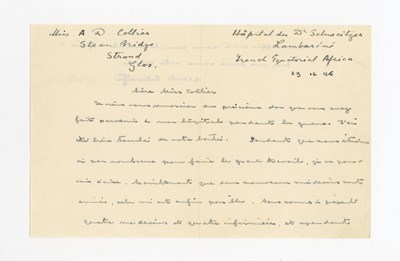 Miss A D Collier
Stean Bridge
Stroud
Glos.
Hôpital du Dr Schweitzer
Lambaréné
French Equatorial Africa
29 12 46
Miss Collier
Je vous remercie du précieux don que vous avez
fait parvenir à mon hôpital pendant la guerre. J'ai
été très touché de votre bonté. Pendant que nous étions
si peu nombreux pour faire le grand travail, je ne pou-
vais écrire. Maintenant que deux nouveaux médecins sont
arrivés, cela m'est enfin possible. Nous sommes à présent
quatre médecins et quatre infirmières, et cependant